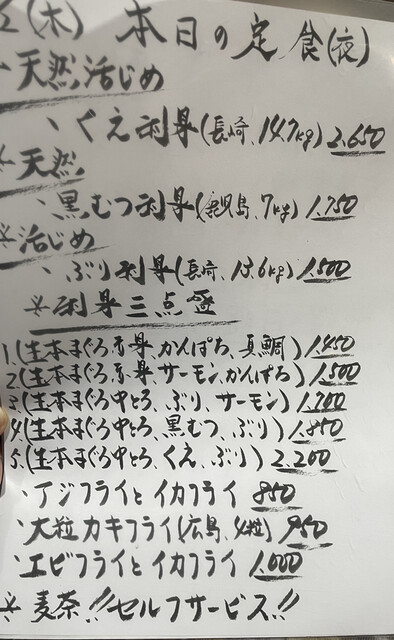 (木) 本日の定食(夜)
天然活じめ
、くえ刺身(長崎、14.7kg) 2.650
※天然
、黒むつ刺身(鹿児島、7kg) 1.750
※活じめ
、ぶり刺身(長崎、13.6kg) 1.500
※刺身三点盛
1.(生本まぐろ赤身、かんぱち、真鯛) 1.450
2.(生本まぐろ赤身、サーモン、かんぱち) 1.500
3.(生本まぐろ中とろ、ぶり、サーモン) 1.700
4.(生本まぐろ中とろ、黒むつ、ぶり) 1.850
5.(生本まぐろ中とろ、くえ、ぶり) 2.200
、アジフライとイカフライ 850
、大粒カキフライ(広島、4粒) 950
、エビフライとイカフライ 1.000
※麦茶!!セルフサービス!!